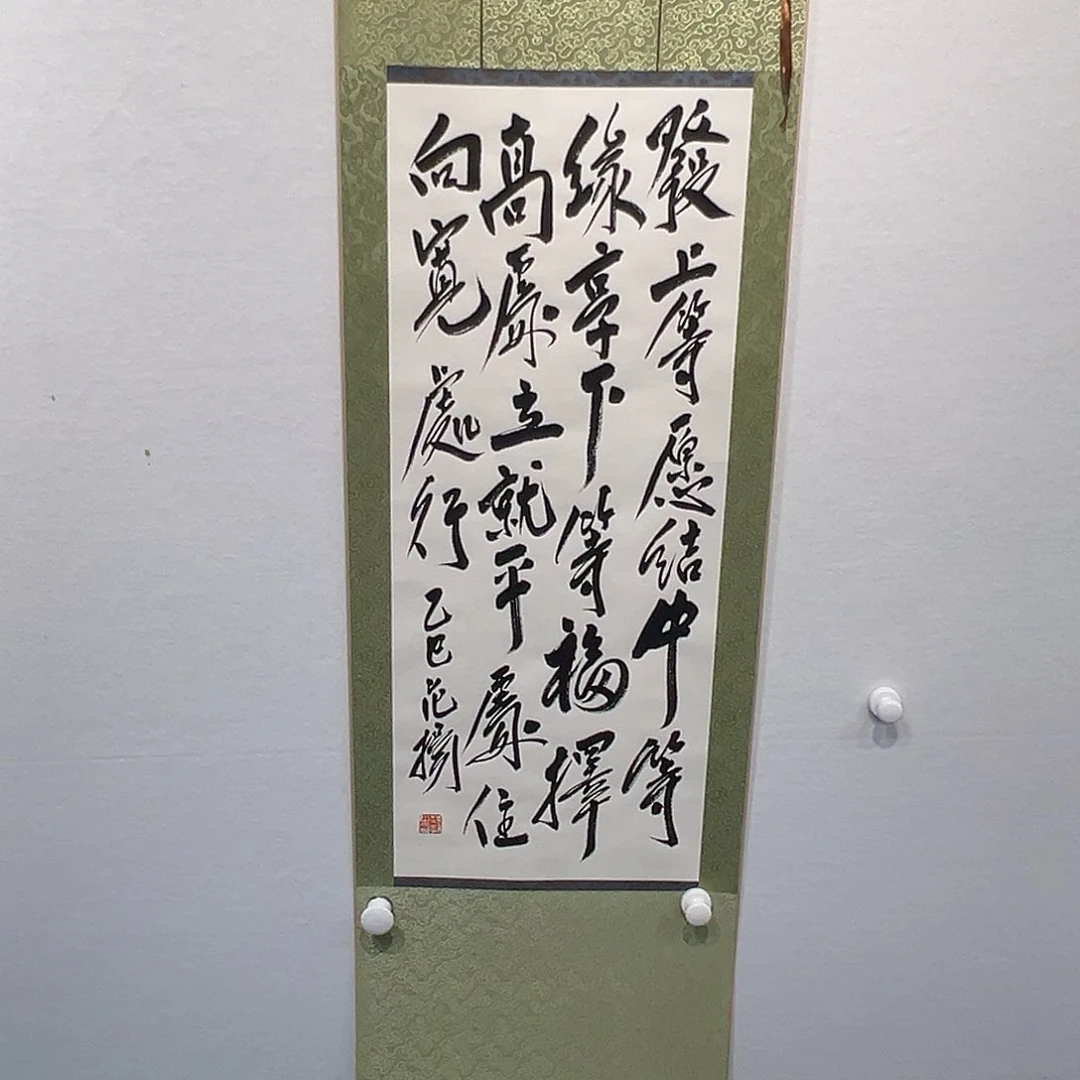 發上等愿結中等
緣享下等福擇
高處立就平處住
向寬處行乙巳范揚